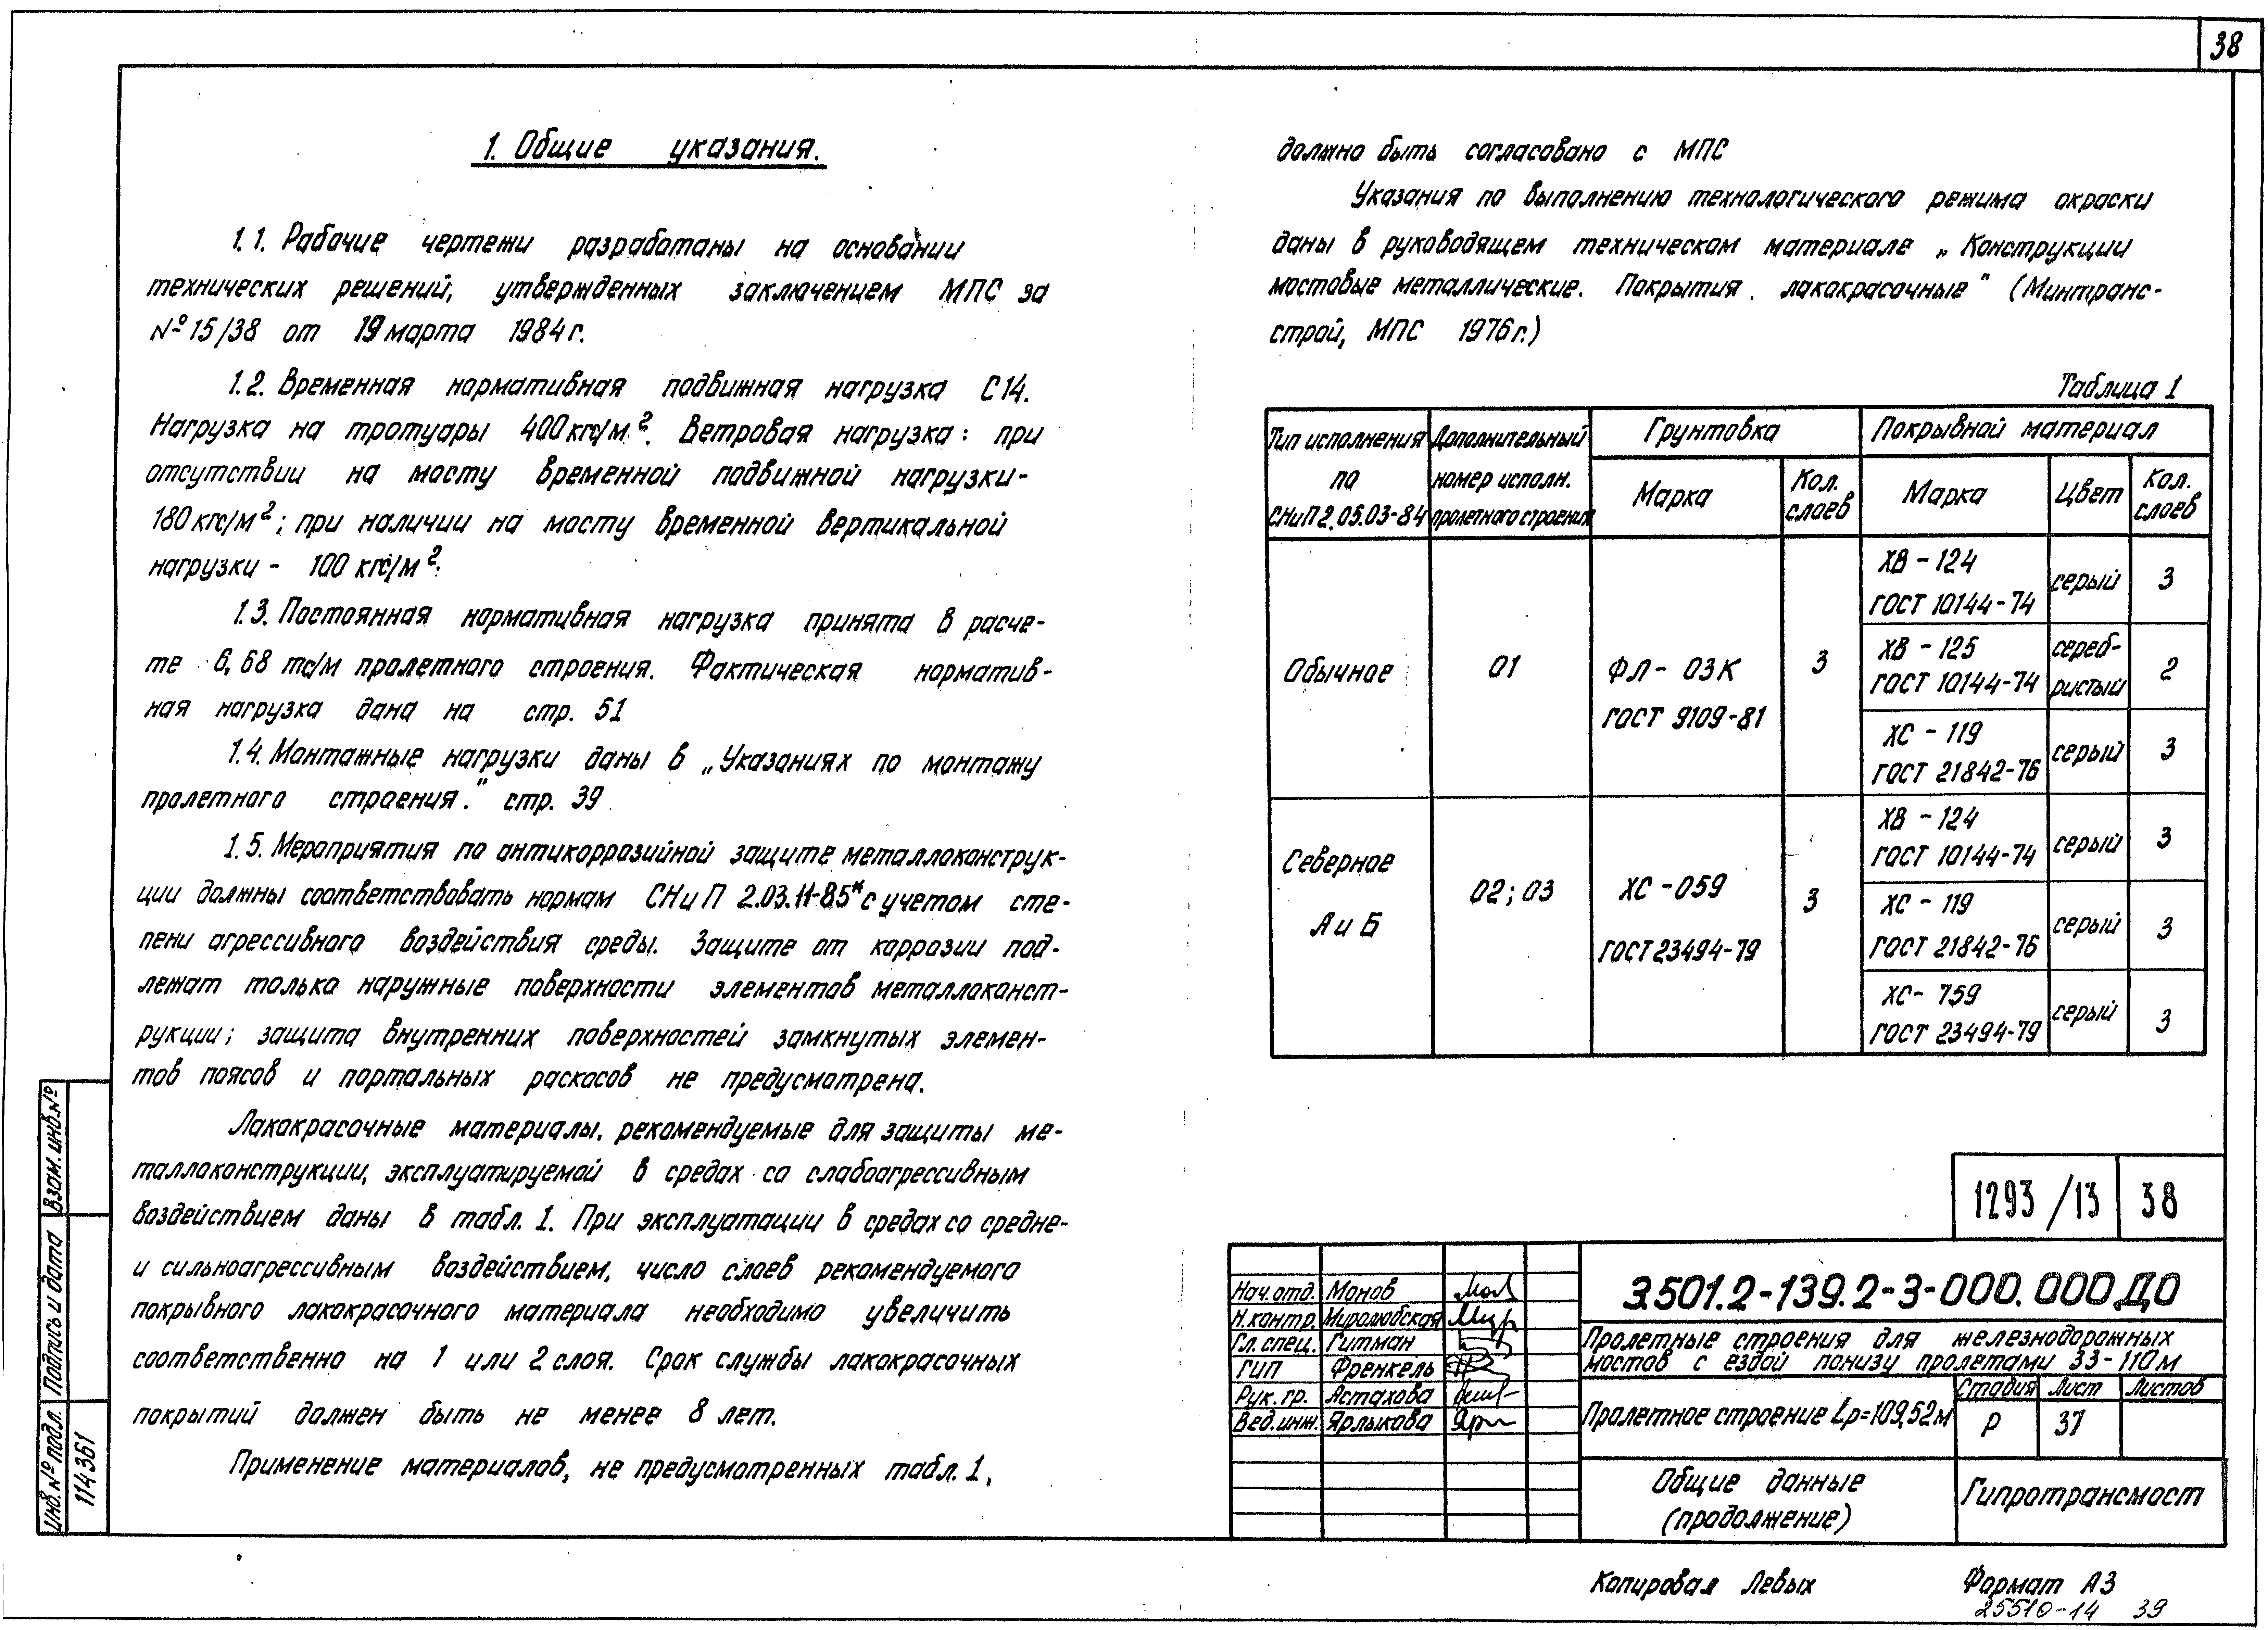 38
1. Общие указания.
1.1. Рабочие чертежи разработаны на основании
технических решений, утвержденных заключением МПС за
№15/38 от 19 марта 1984г.
1.2. Временная нормативная подвижная нагрузка С14.
Нагрузка на тротуары 400кгс/м². Ветровая нагрузка: при
отсутствии на мосту временной подвижной нагрузки-
180кгс/м²; при наличии на мосту временной вертикальной
нагрузки - 100 кгс/м².
1.3. Постоянная нормативная нагрузка принята в расче-
те 6,68 тс/м пролетного строения. Фактическая норматив-
ная нагрузка дана на стр. 51
1.4. Монтажные нагрузки даны в „Указаниях по монтажу
пролетного строения." стр. 39
1.5. Мероприятия по антикоррозийной защите металлоконструк-
ции должны соответствовать нормам СНиП 2.03.11-85* с учетом сте-
пени агрессивного воздействия среды. Защите от коррозии под-
лежат только наружные поверхности элементов металлоконст-
рукции; защита внутренних поверхностей замкнутых элемен-
тов поясов и портальных раскосов не предусмотрена.
Лакокрасочные материалы, рекомендуемые для защиты ме-
таллоконструкции, эксплуатируемой в средах со слабоагрессивным
воздействием даны в табл. 1. При эксплуатации в средах со средне-
и сильноагрессивным воздействием, число слоев рекомендуемого
покрывного лакокрасочного материала необходимо увеличить
соответственно на 1 или 2 слоя. Срок службы лакокрасочных
покрытий должен быть не менее 8 лет.
Применение материалов, не предусмотренных табл. 1,
должно быть согласовано с МПС
Указания по выполнению технологического режима окраски
даны в руководящем техническом материале „Конструкции
мостовые металлические. Покрытия лакокрасочные" (Минтранс-
строй, МПС 1976г.)
Таблица 1
Тип исполнения по СНиП 2.05.03-84
Дополнительный номер исполн. пролетного строения
Грунтовка
Покрывной материал
Марка
Кол. слоев
Марка
Цвет
Кол. слоев
Обычное
01
ФЛ-03К
ГОСТ 9109-81
3
ХВ-124
ГОСТ 10144-74
серый
3
ХВ-125
ГОСТ 10144-74
сереб-
ристый
2
ХС-119
ГОСТ 21842-76
серый
3
Северное
А и Б
02; 03
ХС-059
ГОСТ 23494-79
3
ХВ-124
ГОСТ 10144-74
серый
3
ХС-119
ГОСТ 21842-76
серый
3
ХС-759
ГОСТ 23494-79
серый
3
1293/13 38
3.501.2-139.2-3-000.000 ДО
Нач.отд. Монов
Н.контр. Миролюбская
Гл.спец. Гитман
ГИП Френкель
Рук.гр. Астахова
Вед.инж. Ярлыкова
Пролетные строения для железнодорожных
мостов с ездой понизу пролетами 33-110м
Пролетное строение Lр=109,52м
Стадия Лист Листов
Р 37
Общие данные
(продолжение)
Гипротрансмост
Взам.инв.№
Подпись и дата
Инв.№подл.
114361
Копировал Левых
Формат А3
25510-14 39